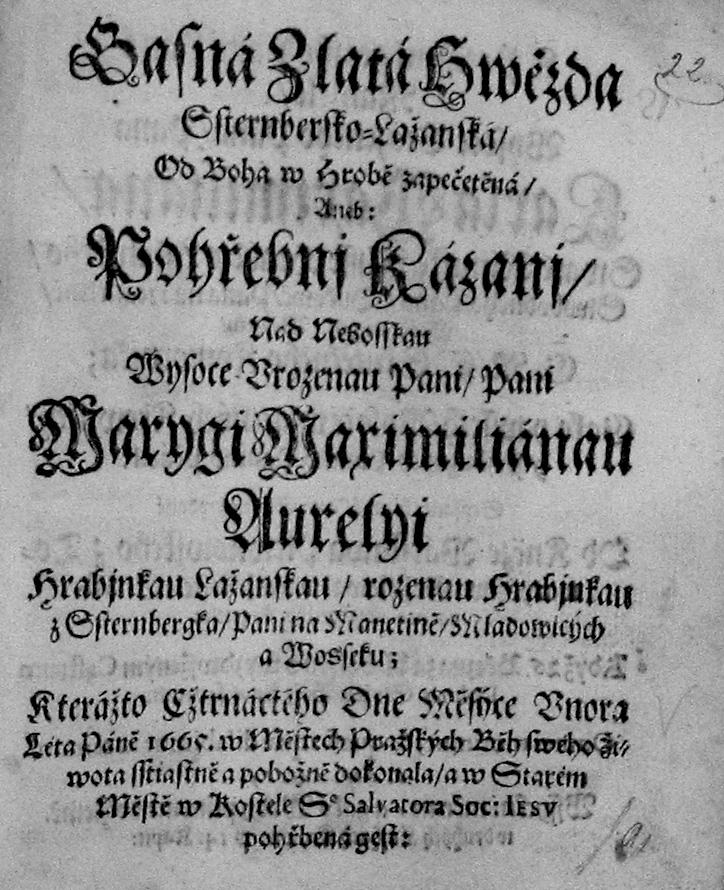 Gasná Zlatá Hwězda
22
Ssternbersko-Lažanská/
Od Boha w Hrobě zapečetěná/
Aneb:
Pohřebnj Kázanj/
Nad Nebosskau
Wysoce Vrozenau Pani/ Pani
Marygi Maximiliánau
Aurelyi
Hrabjnkau Lažanskau / rozenau Hrabjnkau
z Ssternbergka/ Pani na Manetině/ Mladowicých
a Wosseku;
Kterážto Cžtrnáctého Dne Měsýce Vnora
Léta Páně 1665. w Městech Pražských Běh swého ži-
wota sstiastně a pobožně dokonala/ a w Starém
Městě w Kostele S. Salvatora Soc: IESV
pohřbená gest: